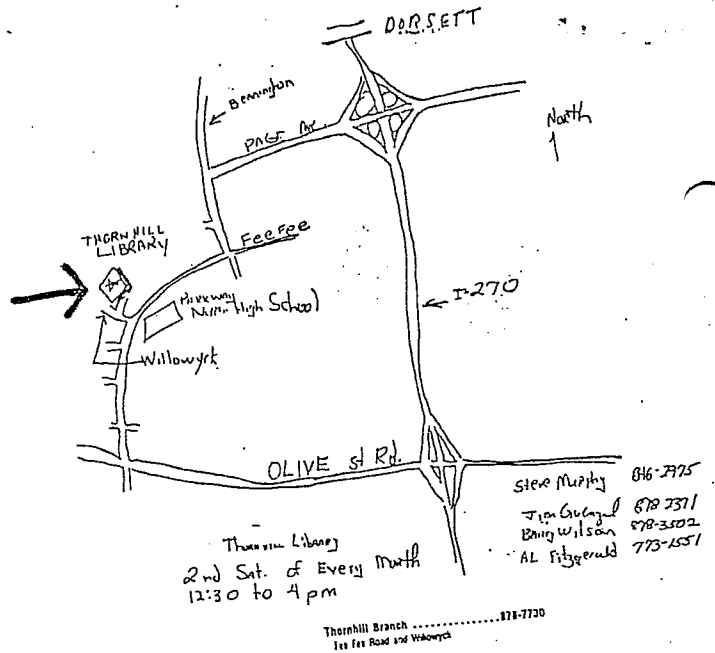 DORSETT
Bennington
PAGE AV.
North
THORNHILL
LIBRARY
FeeFee
Parkway
North High School
I-270
Willowyck
OLIVE St Rd.
Steve Murphy
Jim
Barry Wilson 878-3502
AL Fitzgerald 773-1551
Thornhill Library
2nd Sat. of Every Month
12:30 to 4 pm
Thornhill Branch ................ 878-7730
Fee Fee Road and Willowyck